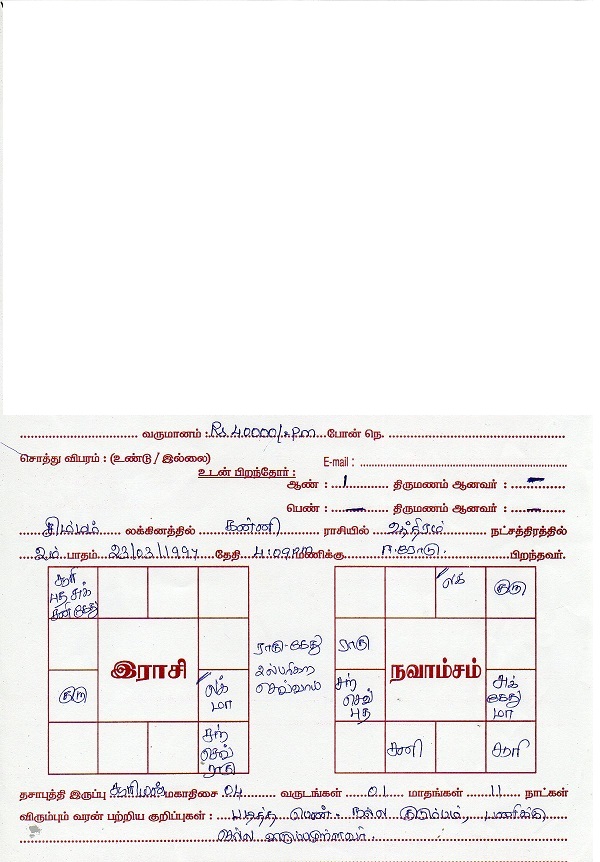 வருமானம் : Rs. 40000/= P.m போன் நெ.
சொத்து விபரம் : (உண்டு / இல்லை)
உடன் பிறந்தோர் :
E-mail :
ஆண் : 1 திருமணம் ஆனவர் : –
பெண் : – திருமணம் ஆனவர் : –
சிம்மம் லக்கினத்தில் கன்னி ராசியில் உத்திரம் நட்சத்திரத்தில்
2ம் பாதம் 23/03/1997 தேதி 4:09 PM மணிக்கு ஈரோடு. பிறந்தவர்.
சூரி
புத சுக்
சனி கேது
குரு
இராசி
லக்
மா
சந்
செவ்
ராகு
ராகு-கேது
செவ்வாய்
லக்
குரு
ராகு
நவாம்சம்
சந்
செவ்
புத
சுக்
கேது
மா
சனி
சூரி
தசாபுத்தி இருப்பு சூரிய மகாதிசை 04 வருடங்கள் 01 மாதங்கள் 11 நாட்கள்
விரும்பும் வரன் பற்றிய குறிப்புகள் : படித்த பெண் - நல்ல குடும்பம்,